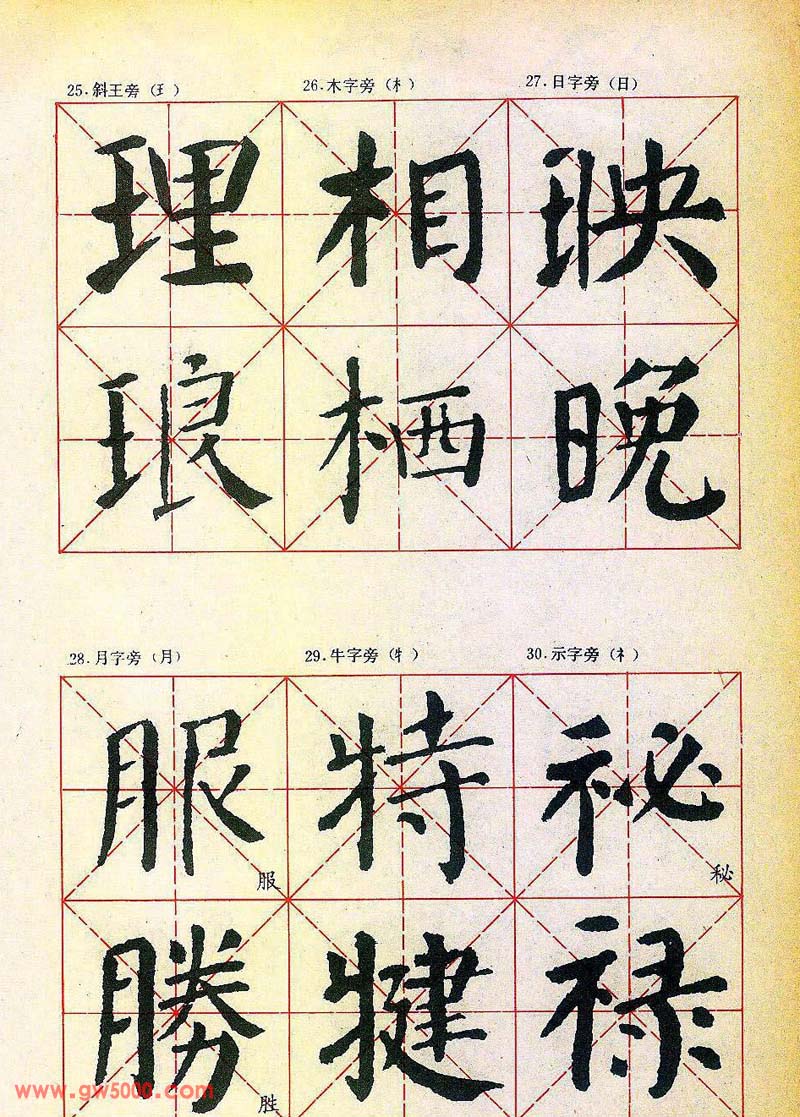 25.斜王旁(𤣩) 26.木字旁(木) 27.日字旁(日)
理 相 映
琅 栖 晚
28.月字旁(月) 29.牛字旁(牜) 30.示字旁(礻)
服 特 祕
服 秘
勝 犍 禄
胜
www.gw5000.com